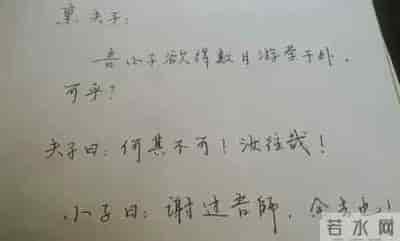 禀夫子:
吾小子欲得数日游学于外,
可乎?
夫子曰:何其不可!汝往哉!
小子曰:谢过吾師,余去也!
若水网